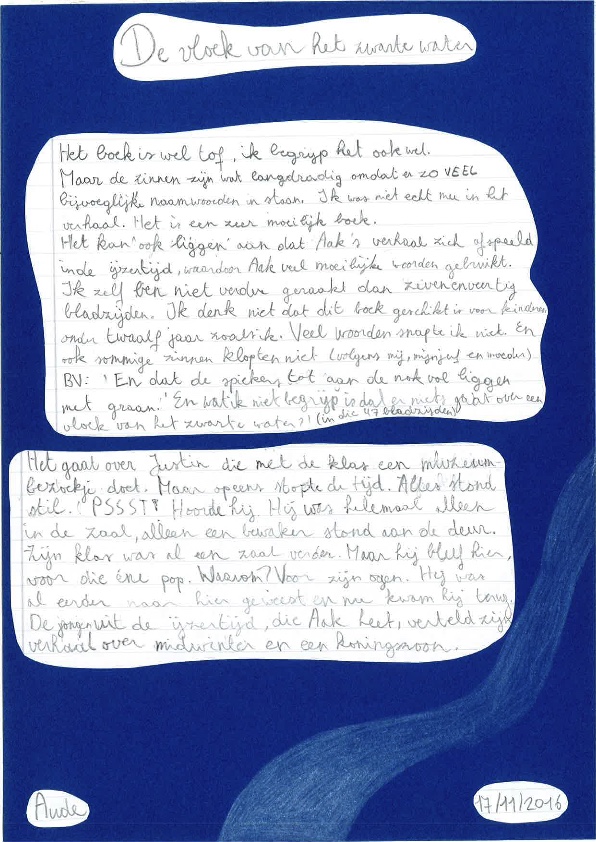 De vloek van het zwarte water
Het boek is wel tof, ik begrijp het ook wel.
Maar de zinnen zijn wat langdradig omdat er zo VEEL
bijvoeglijke naamwoorden in staan. Ik was niet echt mee in het
verhaal. Het is een zeer moeilijk boek.
Het kan 'ook liggen' aan dat Aak's verhaal zich afspeeld
in de ijzertijd, waardoor Aak veel moeilijke woorden gebruikt.
Ik zelf ben niet verder geraakt dan zevenenveertig
bladzijden. Ik denk niet dat dit boek geschikt is voor kinderen
onder twaalf jaar zoals ik. Veel woorden snapte ik niet. En
ook sommige zinnen klopten niet (volgens mij, mijn juf en moeder)
BV: 'En dat de spiekers tot aan de nok vol liggen
met graan.' En wat ik niet begrijp is dat er niets gaat over een
vloek van het zwarte water?! (in die 47 bladzijden)
Het gaat over Justin die met de klas een muzeum-
bezoekje doet. Maar opeens stopte de tijd. Alles stond
stil. PSSST! Hoorde hij. Hij was helemaal alleen
in de zaal, alleen een bewaker stond aan de deur.
Zijn klas was al een zaal verder. Maar hij bleef hier,
voor die éne pop. Waarom? Voor zijn ogen. Hij was
al eerder naar hier geweest en nu kwam hij terug.
De jongen uit de ijzertijd, die Aak heet, verteld zijn
verhaal over midwinter en een koningszoon.
Aude
17/11/2016